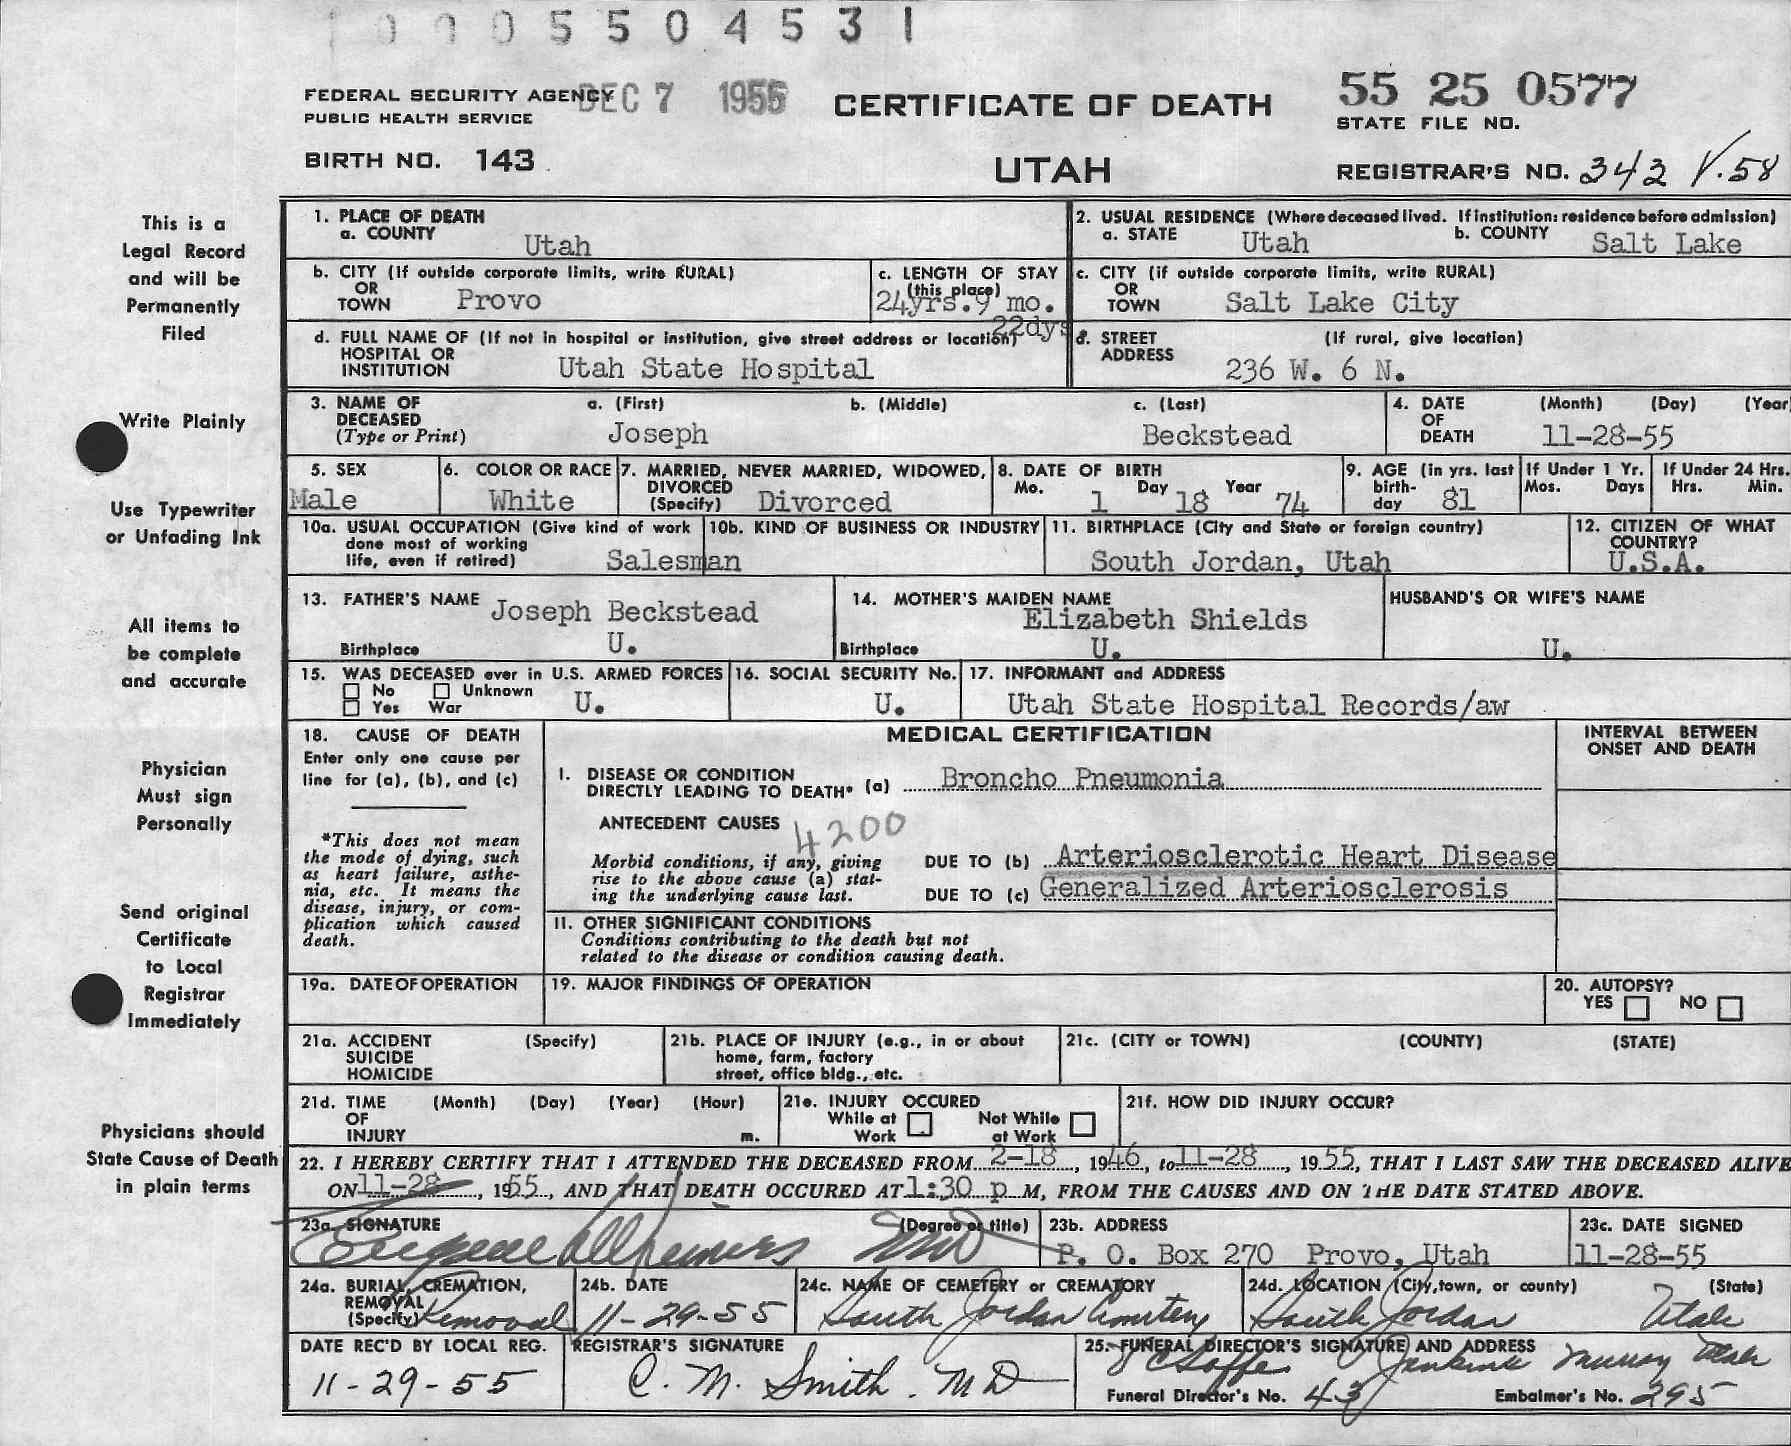 0005504531
FEDERAL SECURITY AGENCY DEC 7 1955 CERTIFICATE OF DEATH 55 25 0577
PUBLIC HEALTH SERVICE STATE FILE NO.
BIRTH NO. 143 UTAH REGISTRAR'S NO. 342 V.58
This is a
Legal Record
and will be
Permanently
Filed
Write Plainly
Use Typewriter
or Unfading Ink
All items to
be complete
and accurate
Physician
Must sign
Personally
Send original
Certificate
to Local
Registrar
Immediately
Physicians should
State Cause of Death
in plain terms
1. PLACE OF DEATH
a. COUNTY Utah
2. USUAL RESIDENCE (Where deceased lived. If institution: residence before admission)
a. STATE Utah b. COUNTY Salt Lake
b. CITY (If outside corporate limits, write RURAL)
OR
TOWN Provo
c. LENGTH OF STAY
(this place)
24yrs.9 mo.
22dys
c. CITY (if outside corporate limits, write RURAL)
OR
TOWN Salt Lake City
d. FULL NAME OF (If not in hospital or institution, give street address or location)
HOSPITAL OR
INSTITUTION Utah State Hospital
d. STREET (If rural, give location)
ADDRESS 236 W. 6 N.
3. NAME OF a. (First) b. (Middle) c. (Last)
DECEASED
(Type or Print) Joseph Beckstead
4. DATE (Month) (Day) (Year)
OF
DEATH 11-28-55
5. SEX
Male
6. COLOR OR RACE
White
7. MARRIED, NEVER MARRIED, WIDOWED,
DIVORCED
(Specify) Divorced
8. DATE OF BIRTH
Mo. 1 Day 18 Year 74
9. AGE (in yrs. last
birth-
day 81
If Under 1 Yr.
Mos. Days
If Under 24 Hrs.
Hrs. Min.
10a. USUAL OCCUPATION (Give kind of work
done most of working
life, even if retired) Salesman
10b. KIND OF BUSINESS OR INDUSTRY
11. BIRTHPLACE (City and State or foreign country)
South Jordan, Utah
12. CITIZEN OF WHAT
COUNTRY?
U.S.A.
13. FATHER'S NAME Joseph Beckstead
Birthplace U.
14. MOTHER'S MAIDEN NAME
Elizabeth Shields
Birthplace U.
HUSBAND'S OR WIFE'S NAME
U.
15. WAS DECEASED ever in U.S. ARMED FORCES
No Unknown
Yes War U.
16. SOCIAL SECURITY No.
U.
17. INFORMANT and ADDRESS
Utah State Hospital Records/aw
18. CAUSE OF DEATH
Enter only one cause per
line for (a), (b), and (c)
*This does not mean
the mode of dying, such
as heart failure, asthe-
nia, etc. It means the
disease, injury, or com-
plication which caused
death.
MEDICAL CERTIFICATION
INTERVAL BETWEEN
ONSET AND DEATH
I. DISEASE OR CONDITION
DIRECTLY LEADING TO DEATH* (a) Broncho Pneumonia
ANTECEDENT CAUSES 4200
Morbid conditions, if any, giving
rise to the above cause (a) stat-
ing the underlying cause last.
DUE TO (b) Arteriosclerotic Heart Disease
DUE TO (c) Generalized Arteriosclerosis
II. OTHER SIGNIFICANT CONDITIONS
Conditions contributing to the death but not
related to the disease or condition causing death.
19a. DATE OF OPERATION
19. MAJOR FINDINGS OF OPERATION
20. AUTOPSY?
YES NO
21a. ACCIDENT (Specify)
SUICIDE
HOMICIDE
21b. PLACE OF INJURY (e.g., in or about
home, farm, factory
street, office bldg., etc.
21c. (CITY or TOWN) (COUNTY) (STATE)
21d. TIME (Month) (Day) (Year) (Hour)
OF
INJURY m.
21e. INJURY OCCURED
While at Not While
Work at Work
21f. HOW DID INJURY OCCUR?
22. I HEREBY CERTIFY THAT I ATTENDED THE DECEASED FROM 2-18, 1946, to 11-28, 1955, THAT I LAST SAW THE DECEASED ALIVE
ON 11-28, 1955, AND THAT DEATH OCCURED AT 1:30 p M, FROM THE CAUSES AND ON THE DATE STATED ABOVE.
23a. SIGNATURE (Degree or title)
Eugene MD
23b. ADDRESS
P. O. Box 270 Provo, Utah
23c. DATE SIGNED
11-28-55
24a. BURIAL, CREMATION,
REMOVAL
(Specify) Removal
24b. DATE
11-29-55
24c. NAME OF CEMETERY or CREMATORY
South Jordan Cemetery
24d. LOCATION (City, town, or county) (State)
South Jordan Utah
DATE REC'D BY LOCAL REG.
11-29-55
REGISTRAR'S SIGNATURE
C. M. Smith. MD
25. FUNERAL DIRECTOR'S SIGNATURE AND ADDRESS
Jenkins Murray Utah
Funeral Director's No. 43 Embalmer's No. 295